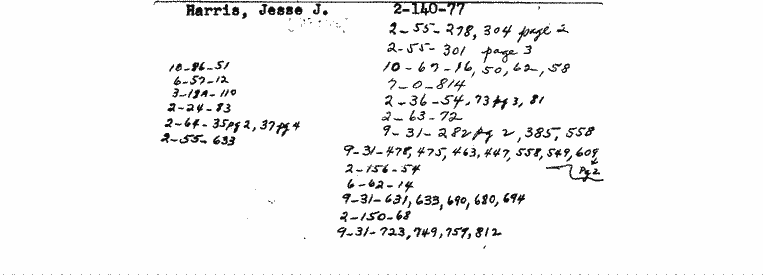 Harris, Jesse J. 2-140-77
2-55-278, 304 page 2
2-55-301 page 3
10-67-16, 50, 62, 58
7-0-814
2-36-54, 73 pg 3, 81
2-63-72
9-31-282 pg 2, 385, 558
10-86-51
6-57-12
3-18A-110
2-24-83
2-64-35 pg 2, 37 pg 4
2-55-633
9-31-478, 475, 463, 447, 558, 549, 609
pg 2
2-156-54
6-62-14
9-31-631, 633, 690, 680, 694
2-150-68
9-31-723, 749, 759, 812